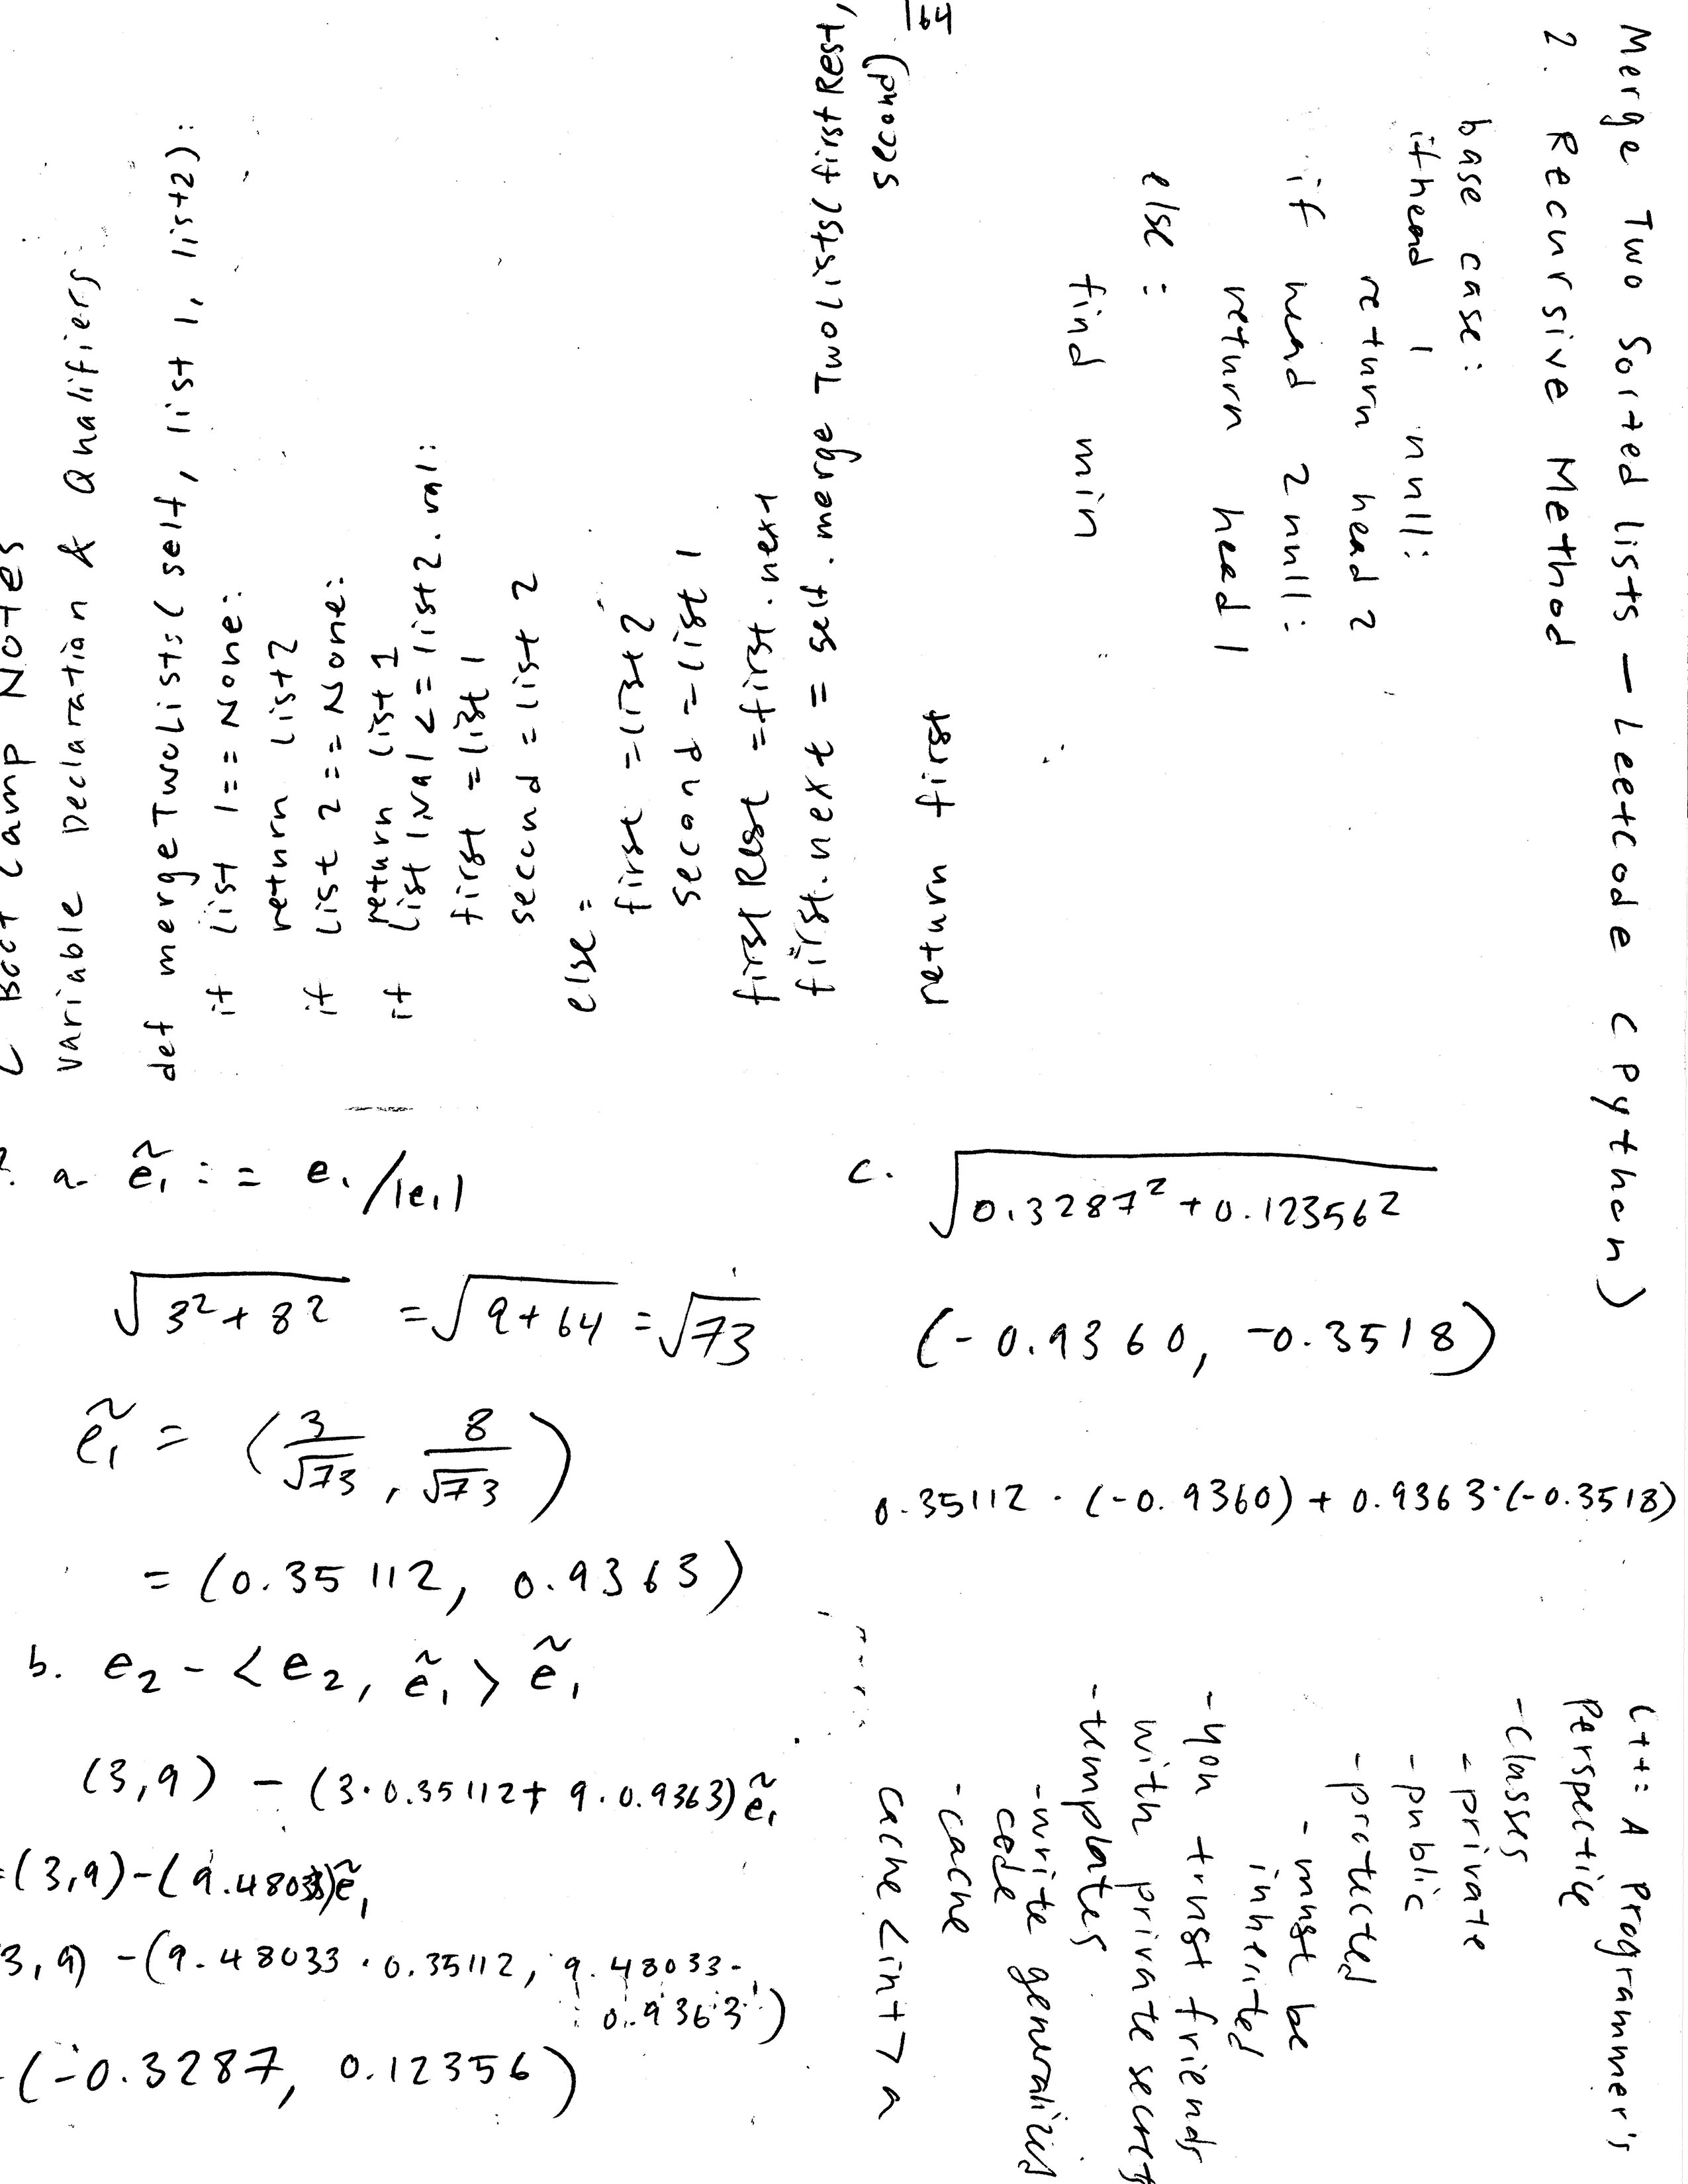 Merge Two Sorted lists - Leetcode (Python)
2. Recursive Method
base case:
if head 1 null:
return head 2
if head 2 null:
return head 1
else:
find min
C Boot Camp Notes
Variable Declaration & Qualifiers
def mergeTwoLists(self, list 1, list2):
if list 1 == None:
return list2
if list 2 == None:
return list 1
if list 1 val <= list2.val:
first = list 1
second = list 2
else:
first = list 2
second = list 1
first Rest = first.next
first.next = self.merge TwoLists(first Rest,
second)
return first
64
a. ẽ₁ := e₁/|e₁|
√(3² + 8²) = √(9 + 64) = √73
ẽ₁ = (3/√73, 8/√73)
= (0.35112, 0.9363)
b. e₂ - <e₂, ẽ₁> ẽ₁
(3,9) - (3·0.35112 + 9·0.9363)ẽ₁
=(3,9)-(9.48033)ẽ₁
3,9) -(9.48033·0.35112, 9.48033·
0.9363)
(-0.3287, 0.12356)
c. √(0.3287² + 0.12356²)
(-0.9360, -0.3518)
0.35112·(-0.9360) + 0.9363·(-0.3518)
C++: A Programmer's
Perspective
-classes
-private
-public
-protected
-must be
inherited
-you trust friends
with private secret
-templates
-write generalized
code
-cache
cache <int> a